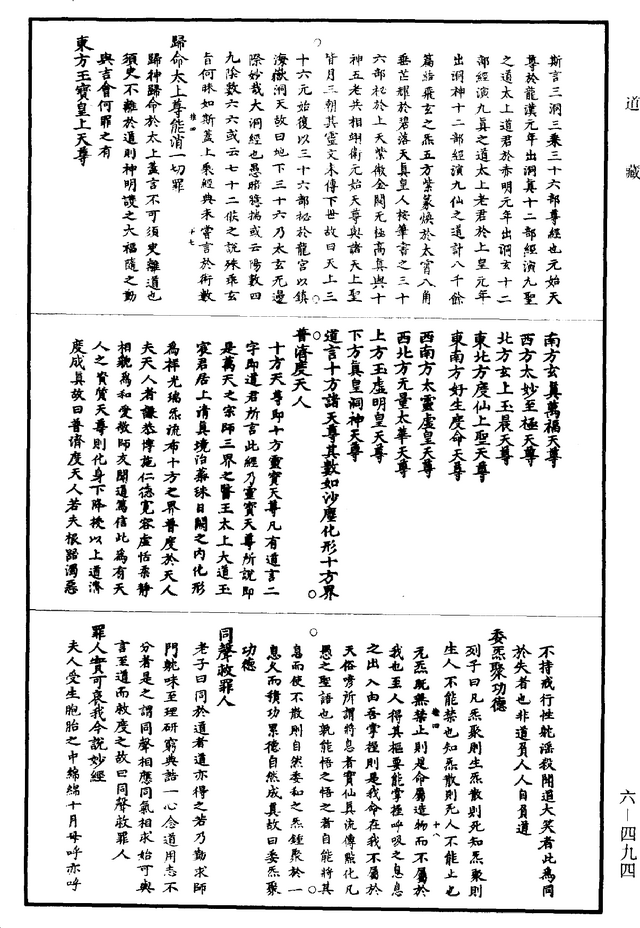 道藏
斯言三洞三乘三十六部尊經也元始天
尊於龍漢元年出洞真十二部經演九聖
之道太上道君於赤明元年出洞玄十二
部經演九真之道太上老君於上皇元年
出洞神十二部經演九仙之道計八千餘
篇皆飛玄之炁五方紫篆煥於太霄八角
垂芒耀於碧落天真皇人按筆書之三十
六部祕於上天紫微金闕无極高真與十
神五老共相翊衛元始天尊與諸天上聖
皆月三朝其靈文未傳下世故曰天上三
十六元始復以三十六部祕於龍宮以鎮
海嶽洞天故曰地下三十六乃太玄无邊
際妙哉大洞經也愚暗臆揣或云陽數四
九陰數六六或云七十二候之說殊乖玄
旨何昧如斯蓋上乘經典未嘗言於術數
歸命太上尊能消一切罪
歸神歸命於太上蓋言不可須臾離道也
須臾不離於道則神明護之大福隨之動
與吉會何罪之有
東方玉寶皇上天尊
南方玄真萬福天尊
西方太妙至極天尊
北方玄上玉晨天尊
東北方度仙上聖天尊
東南方好生度命天尊
西南方太靈虛皇天尊
西北方无量太華天尊
上方玉虛明皇天尊
下方真皇洞神天尊
道言十方諸天尊其數如沙塵化形十方界
普濟度天人
十方天尊即十方靈寶天尊凡有道言二
字即道君所言此經乃靈寶天尊所說即
是萬天之宗師三界之醫王太上大道玉
宸君居上清真境治蘂珠日闕之内化形
為祥光瑞炁流布十方之界普度於天人
夫天人者謙恭博施仁德寬容虛恬柔靜
相親為和愛敬師友聞道篤信此為有天
人之資質天尊則化身下降授以上道濟
度成真故曰普濟度天人若夫根器濁惡
不持戒行性躭滛殺聞道大笑者此為同
於失者也非道員人人自員道
委炁聚功德
列子曰凡炁聚則生炁散則死知炁聚則
生人不能禁也知炁散則死人不能止也
元炁既無禁止則是命屬造物而不屬於
我也至人得其樞要能掌握呼吸之息息
之出入由吾掌握則是我命在我不屬於
天俗彦所謂將息者實仙真流傳點化凡
愚之聖語也孰能悟之悟之者自能將其
息而使不散則自然委和之炁鍾聚於一
息久而積功累德自然成真故曰委炁聚
功德
同聲救罪人
老子曰同於道者道亦得之若乃勤求師
門躭味至理研窮典誥一心念道用志不
分者是之謂同聲相應同氣相求始可與
言至道而救度之故曰同聲救罪人
罪人實可哀我今說妙經
夫人受生胞胎之中綿綿十月母呼亦呼
六—四九四